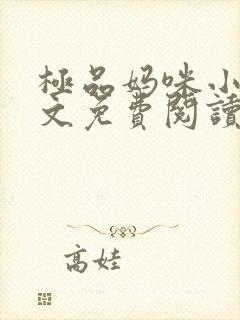 極品妈咪小
文免費閱讀
高娃